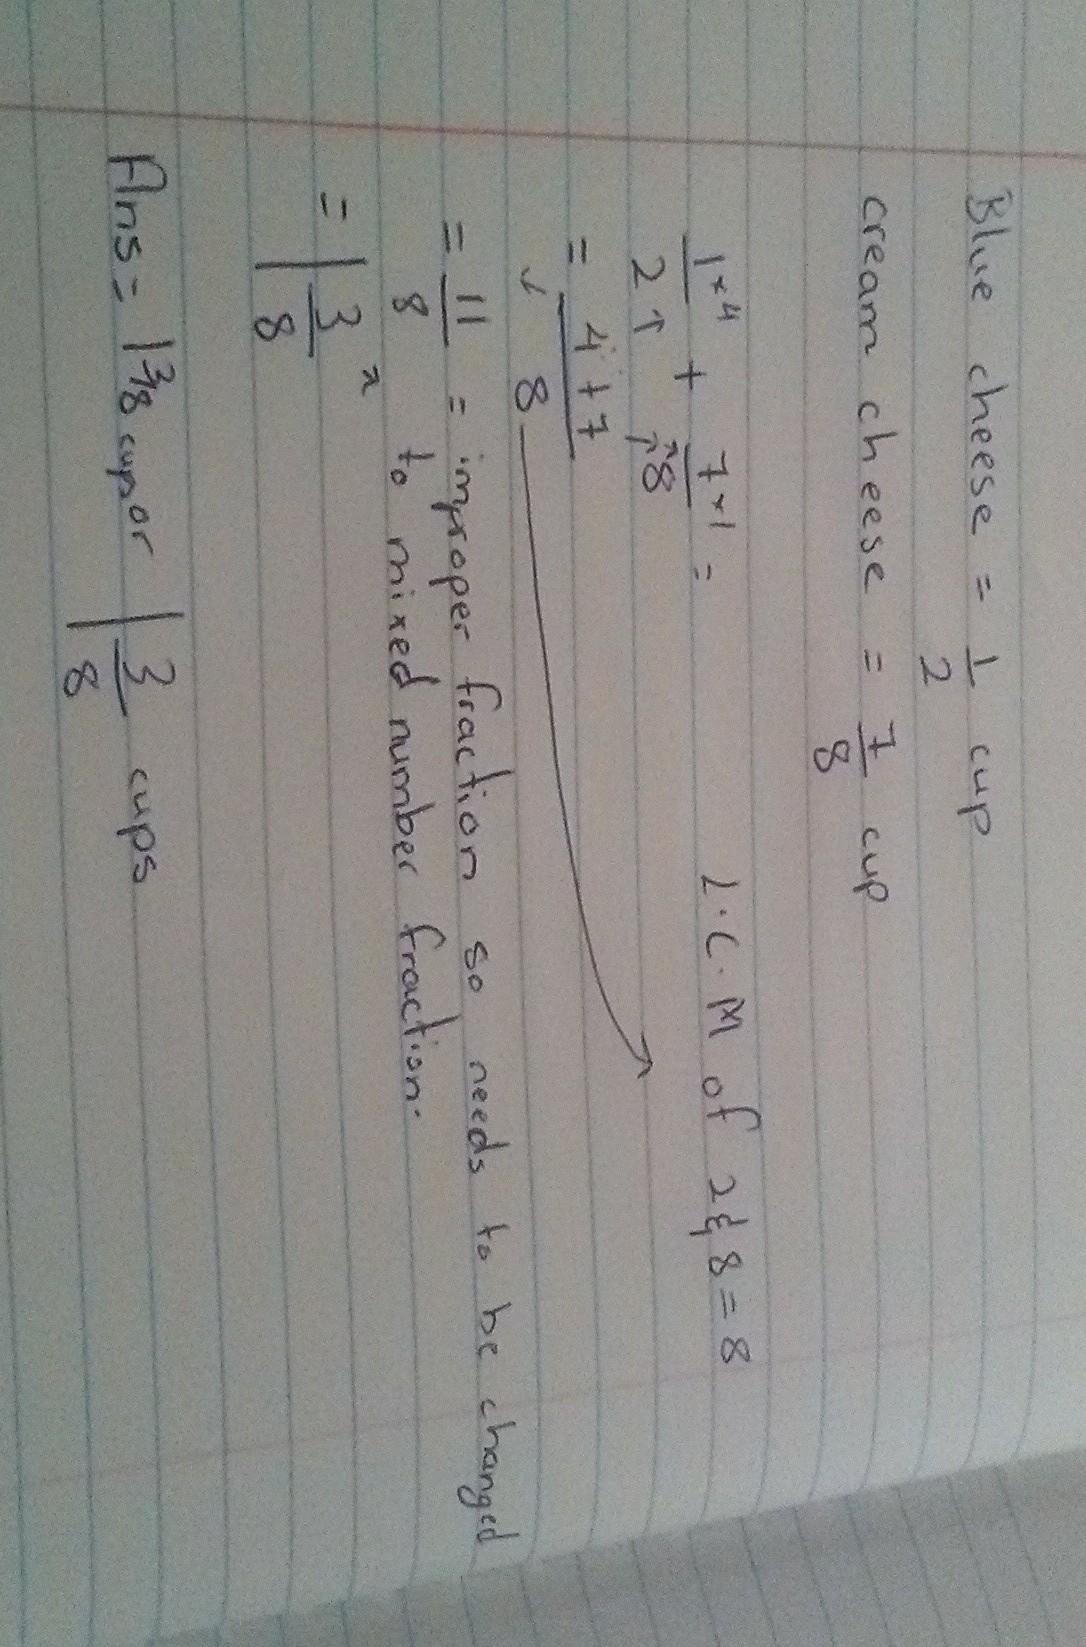 Blue cheese = 1/2 cup
cream cheese = 7/8 cup
1×4/2↑ + 7×1/8 = L.C.M of 2 & 8 = 8
= 4+7/8
= 11/8 = improper fraction so needs to be changed
to mixed number fraction.
= 1 3/8
Ans = 1 3/8 cups or 1 3/8 cups